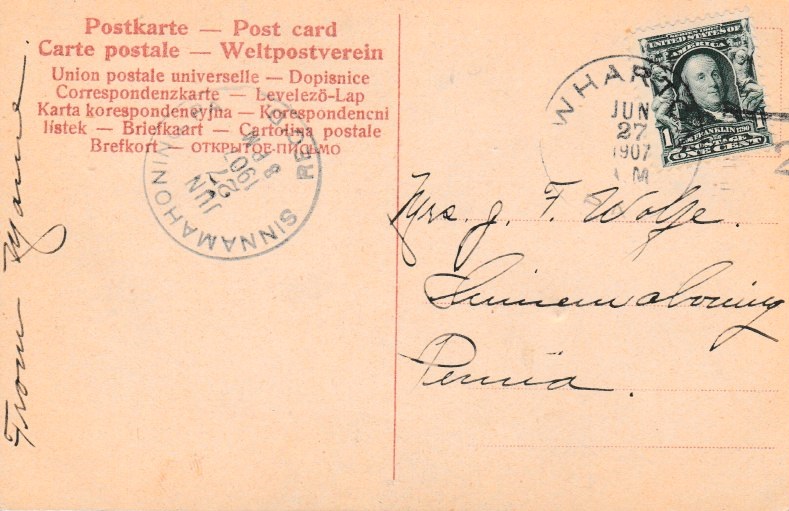 Postkarte — Post card
Carte postale — Weltpostverein
Union postale universelle — Dopisnice
Correspondenzkarte — Levelező-Lap
Karta korespondencyjna — Korespondencni
lístek — Briefkaart — Cartolina postale
Brefkort — ОТКРЫТОЕ-ПИСЬМО
SINNAMAHONING
REC'D
JUN
27
1907
8 PM
WHARTON
JUN
27
1907
M
SERIES 1902
UNITED STATES OF
AMERICA
FRANKLIN 1790
1 POSTAGE 1
ONE CENT
Mrs. J. F. Wolfe.
Sinnemahoning
Penn'a.
From Mame.